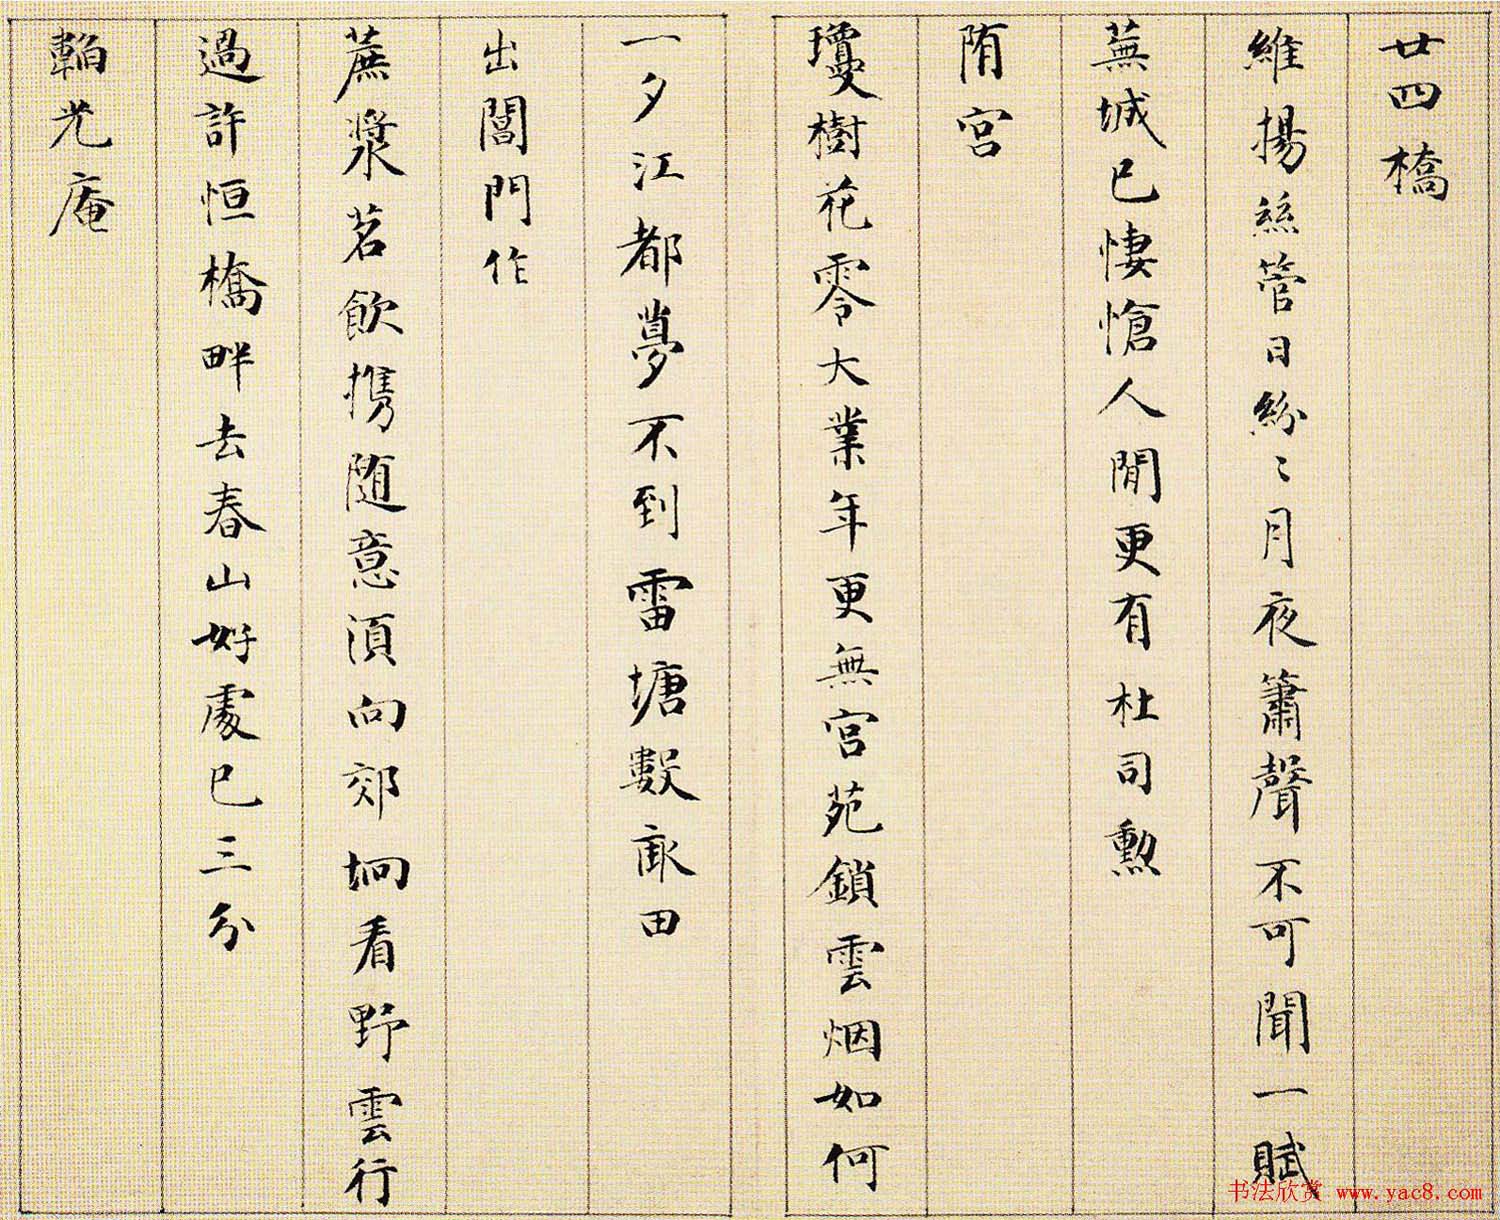 廿四橋
維揚絲管日紛〻月夜簫聲不可聞一賦
蕪城已悽愴人間更有杜司勲
隋宫
瓊樹花零大業年更無宫苑鎖雲烟如何
一夕江都夢不到雷塘數畝田
出閶門作
蔗漿茗飲携随意須向郊坰看野雲行
過許恒橋畔去春山好處已三分
韜光庵
书法欣赏 www.yac8.com